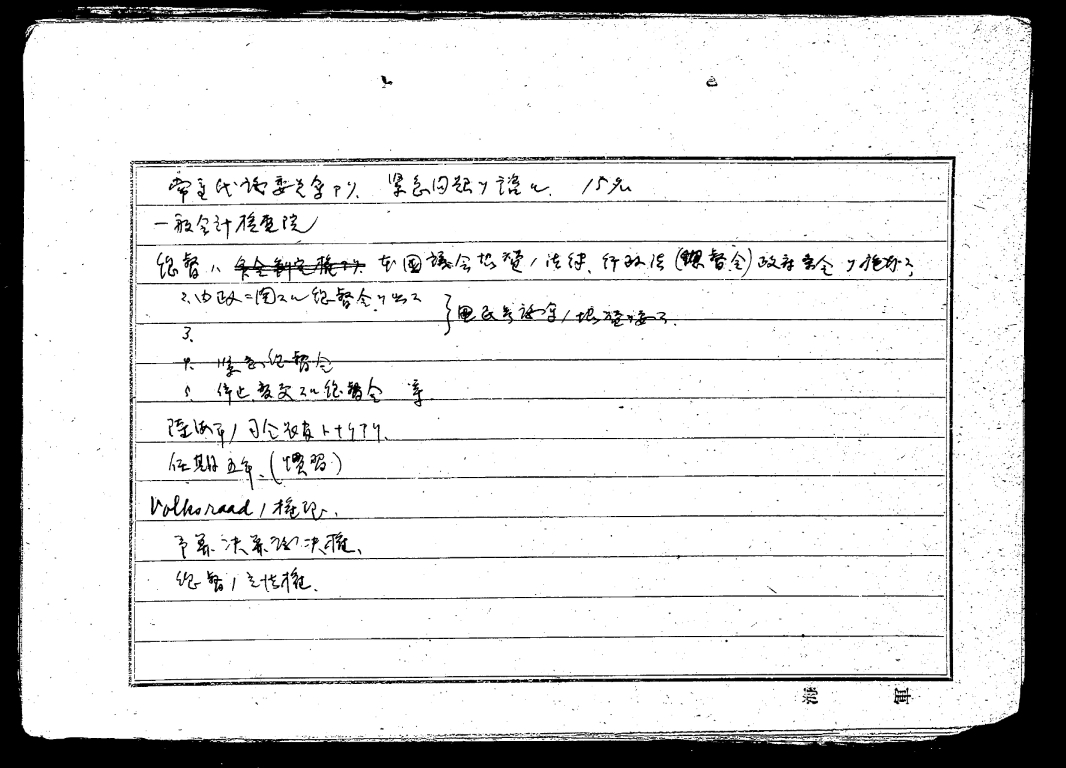 常置代議委員会アリ、緊急問題ヲ議ル 15名
一般会計検査院
総督ハ 本国議会協賛ノ法律、行政法(総督令)政府命令ヲ
2. 内政ニ関スル総督令ヲ出ス
国民参議会ノ協賛ヲ要ス.
3.
4. 緊急総督令
5. 停止変更スル総督令 等
陸海軍ノ司令長官トナリアリ、
任期五年、(慣習)
Volksraadノ権限、
予算決算ノ決権、
総督ノ立法権、
海 軍